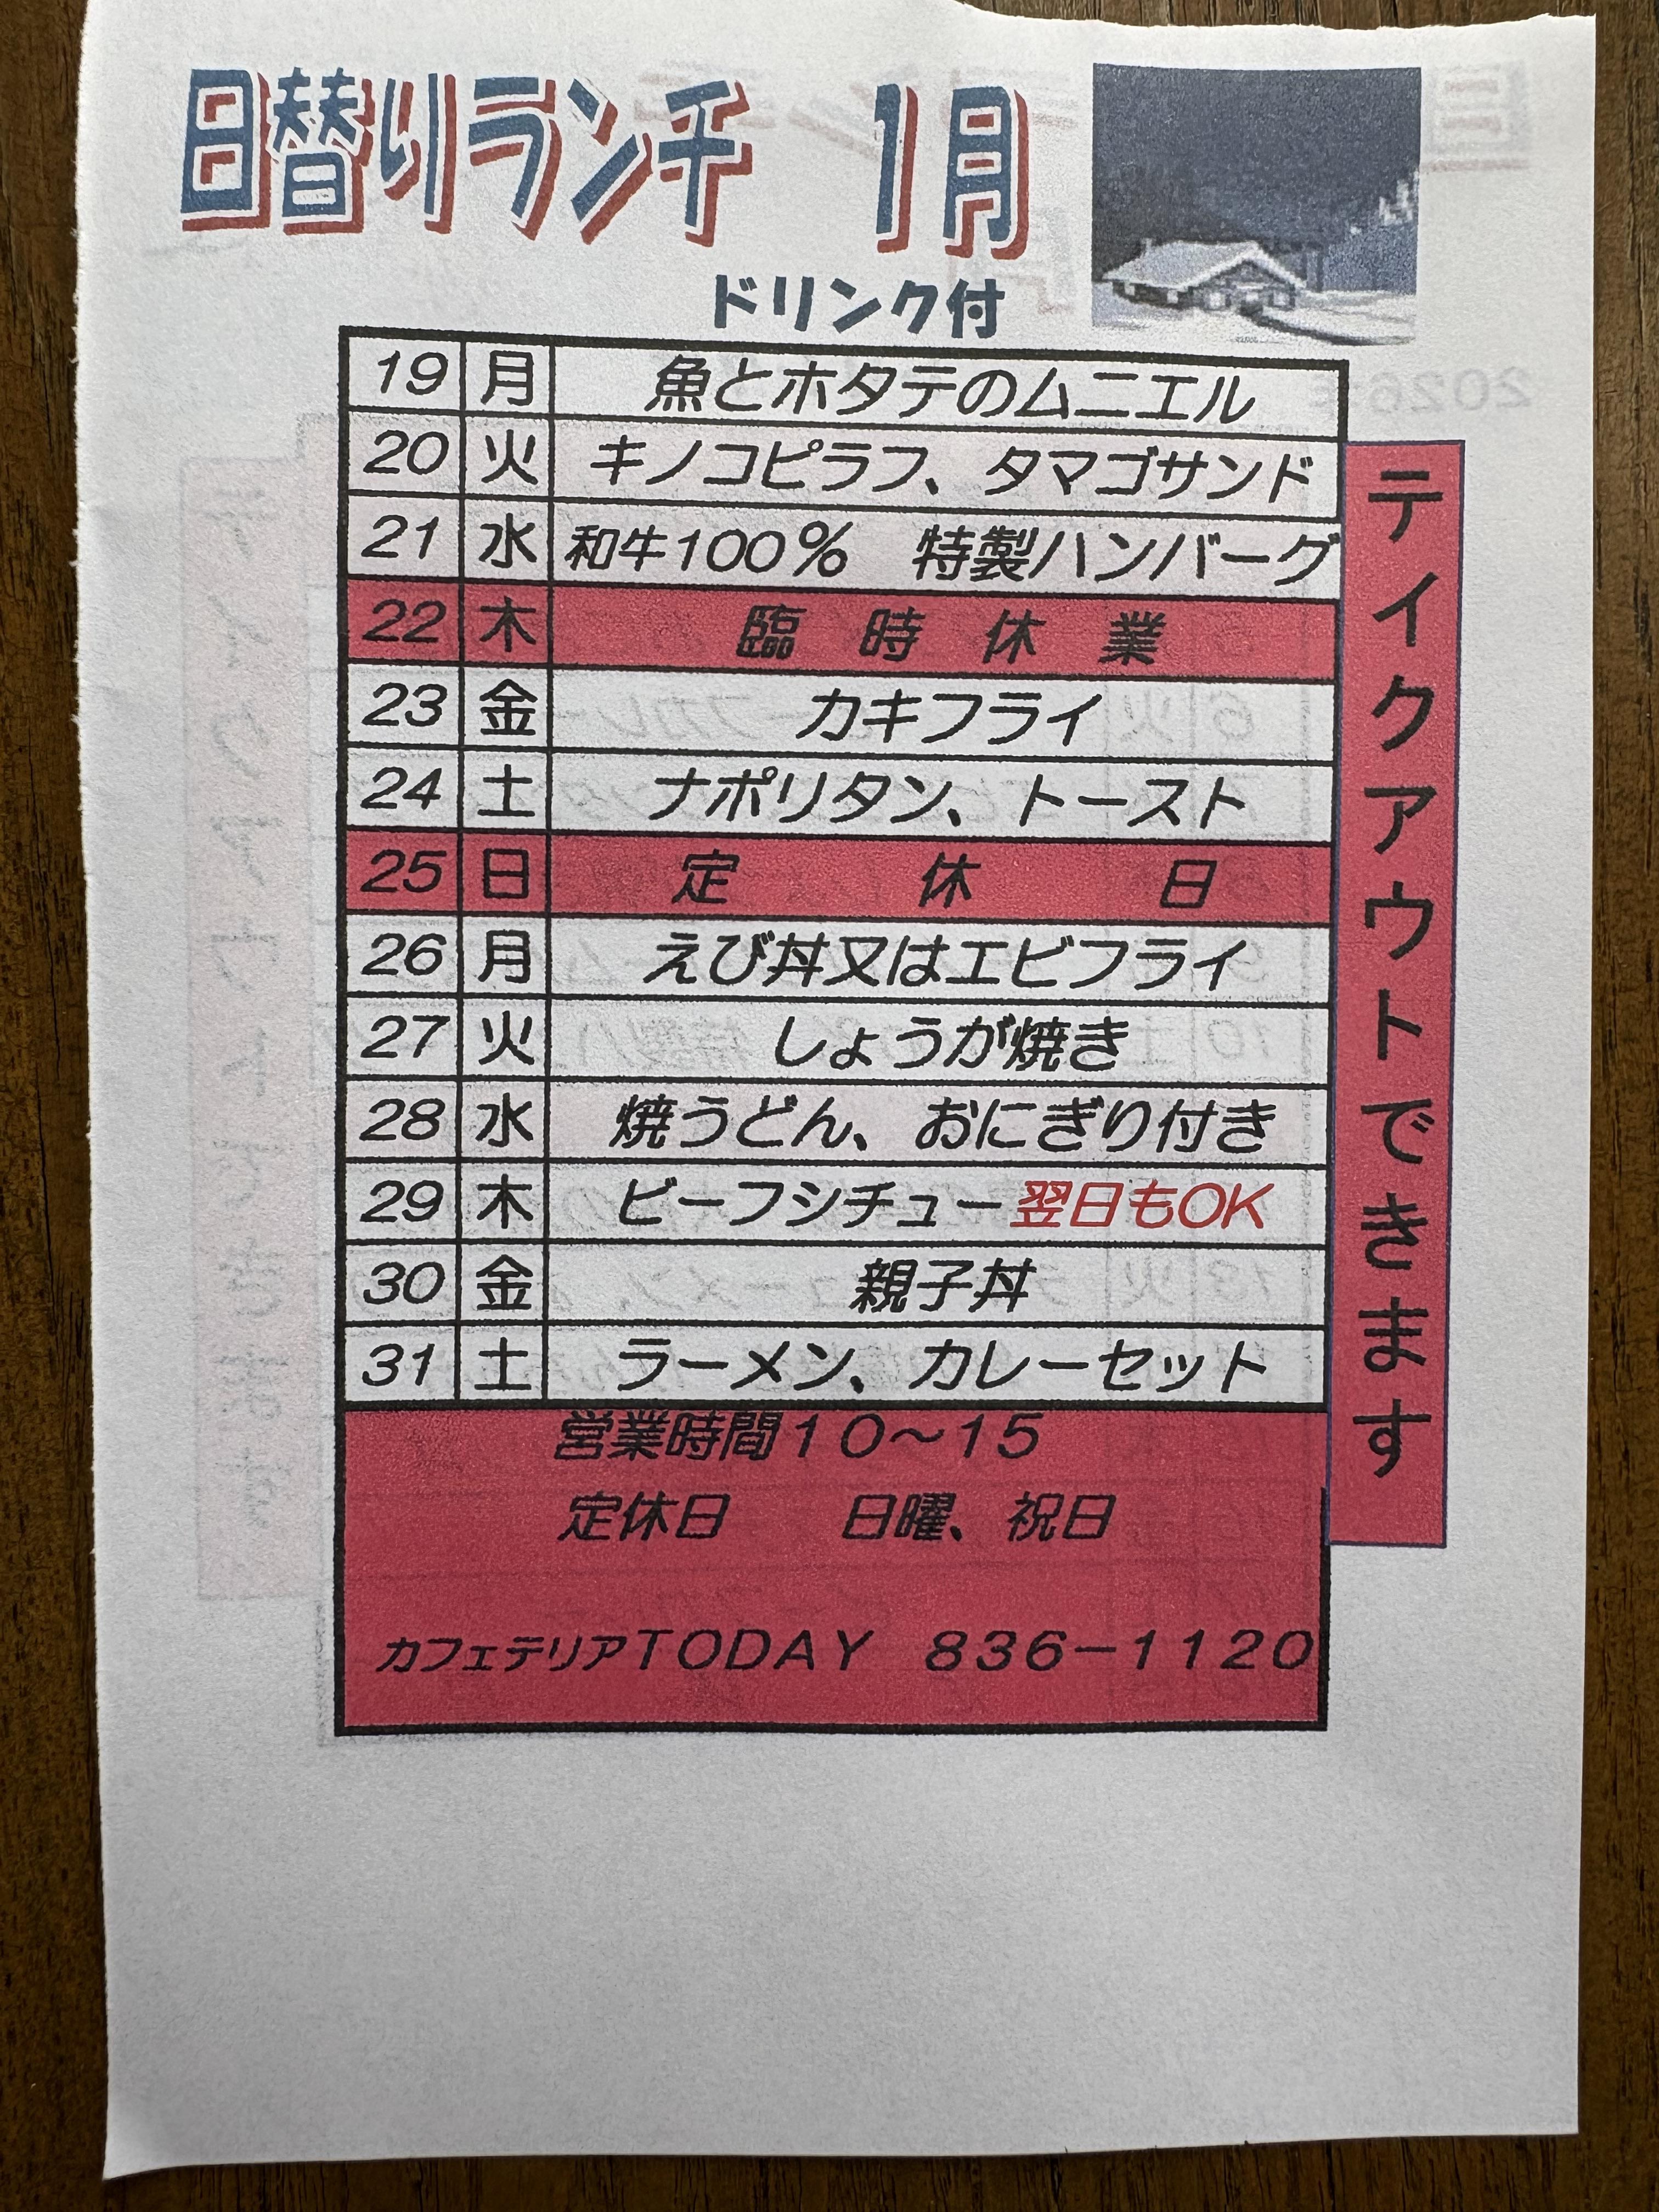 日替りランチ 1月
ドリンク付
19 月 魚とホタテのムニエル
20 火 キノコピラフ、タマゴサンド
21 水 和牛100% 特製ハンバーグ
22 木 臨時休業
23 金 カキフライ
24 土 ナポリタン、トースト
25 日 定休日
26 月 えび丼又はエビフライ
27 火 しょうが焼き
28 水 焼うどん、おにぎり付き
29 木 ビーフシチュー翌日もOK
30 金 親子丼
31 土 ラーメン、カレーセット
営業時間10～15
定休日 日曜、祝日
カフェテリアTODAY 836－1120
テイクアウトできます